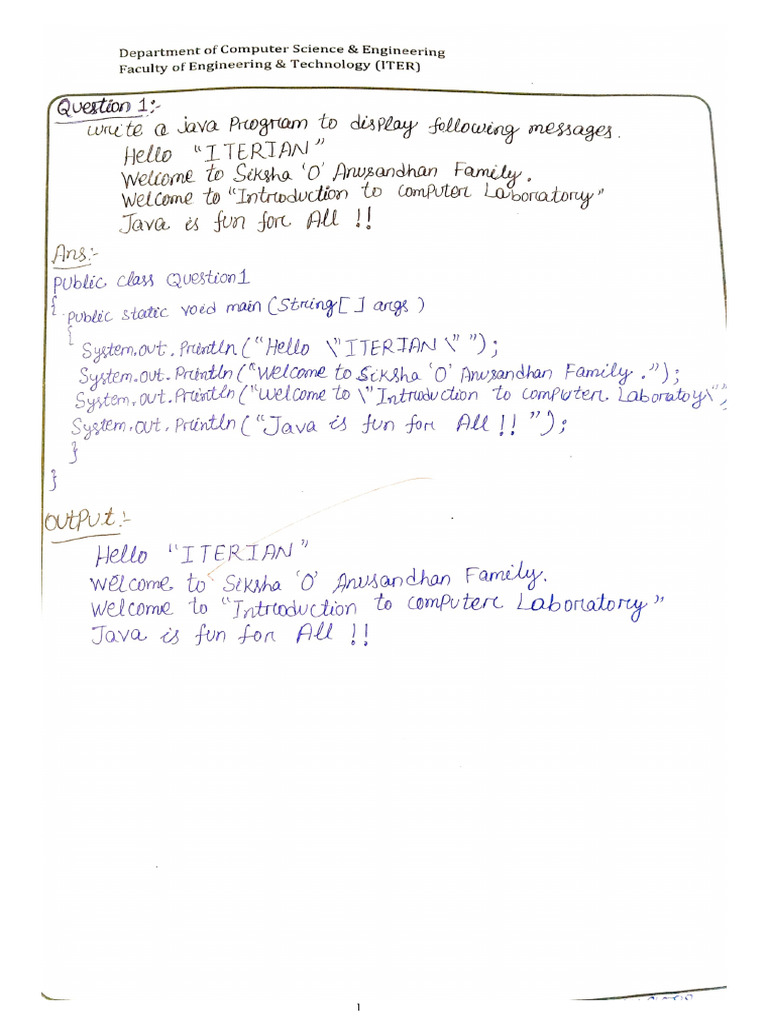 Department of Computer Science & Engineering
Faculty of Engineering & Technology (ITER)
Question 1:-
Write a Java Program to display following messages.
Hello "ITERIAN"
Welcome to Siksha 'O' Anusandhan Family.
Welcome to "Introduction to computer Laboratory"
Java is fun for All !!
Ans:-
public class Question1
{
public static void main (String[] args)
{
System.out.Println("Hello \"ITERIAN\" ");
System.out.Println("Welcome to Siksha 'O' Anusandhan Family.");
System.out.Println("Welcome to \"Introduction to computer Laboratoy\"
System.out.Println("Java is fun for All !! ");
}
}
OUTPUT:-
Hello "ITERIAN"
Welcome to Siksha 'O' Anusandhan Family.
Welcome to "Introduction to computer Laboratory"
Java is fun for All !!
1